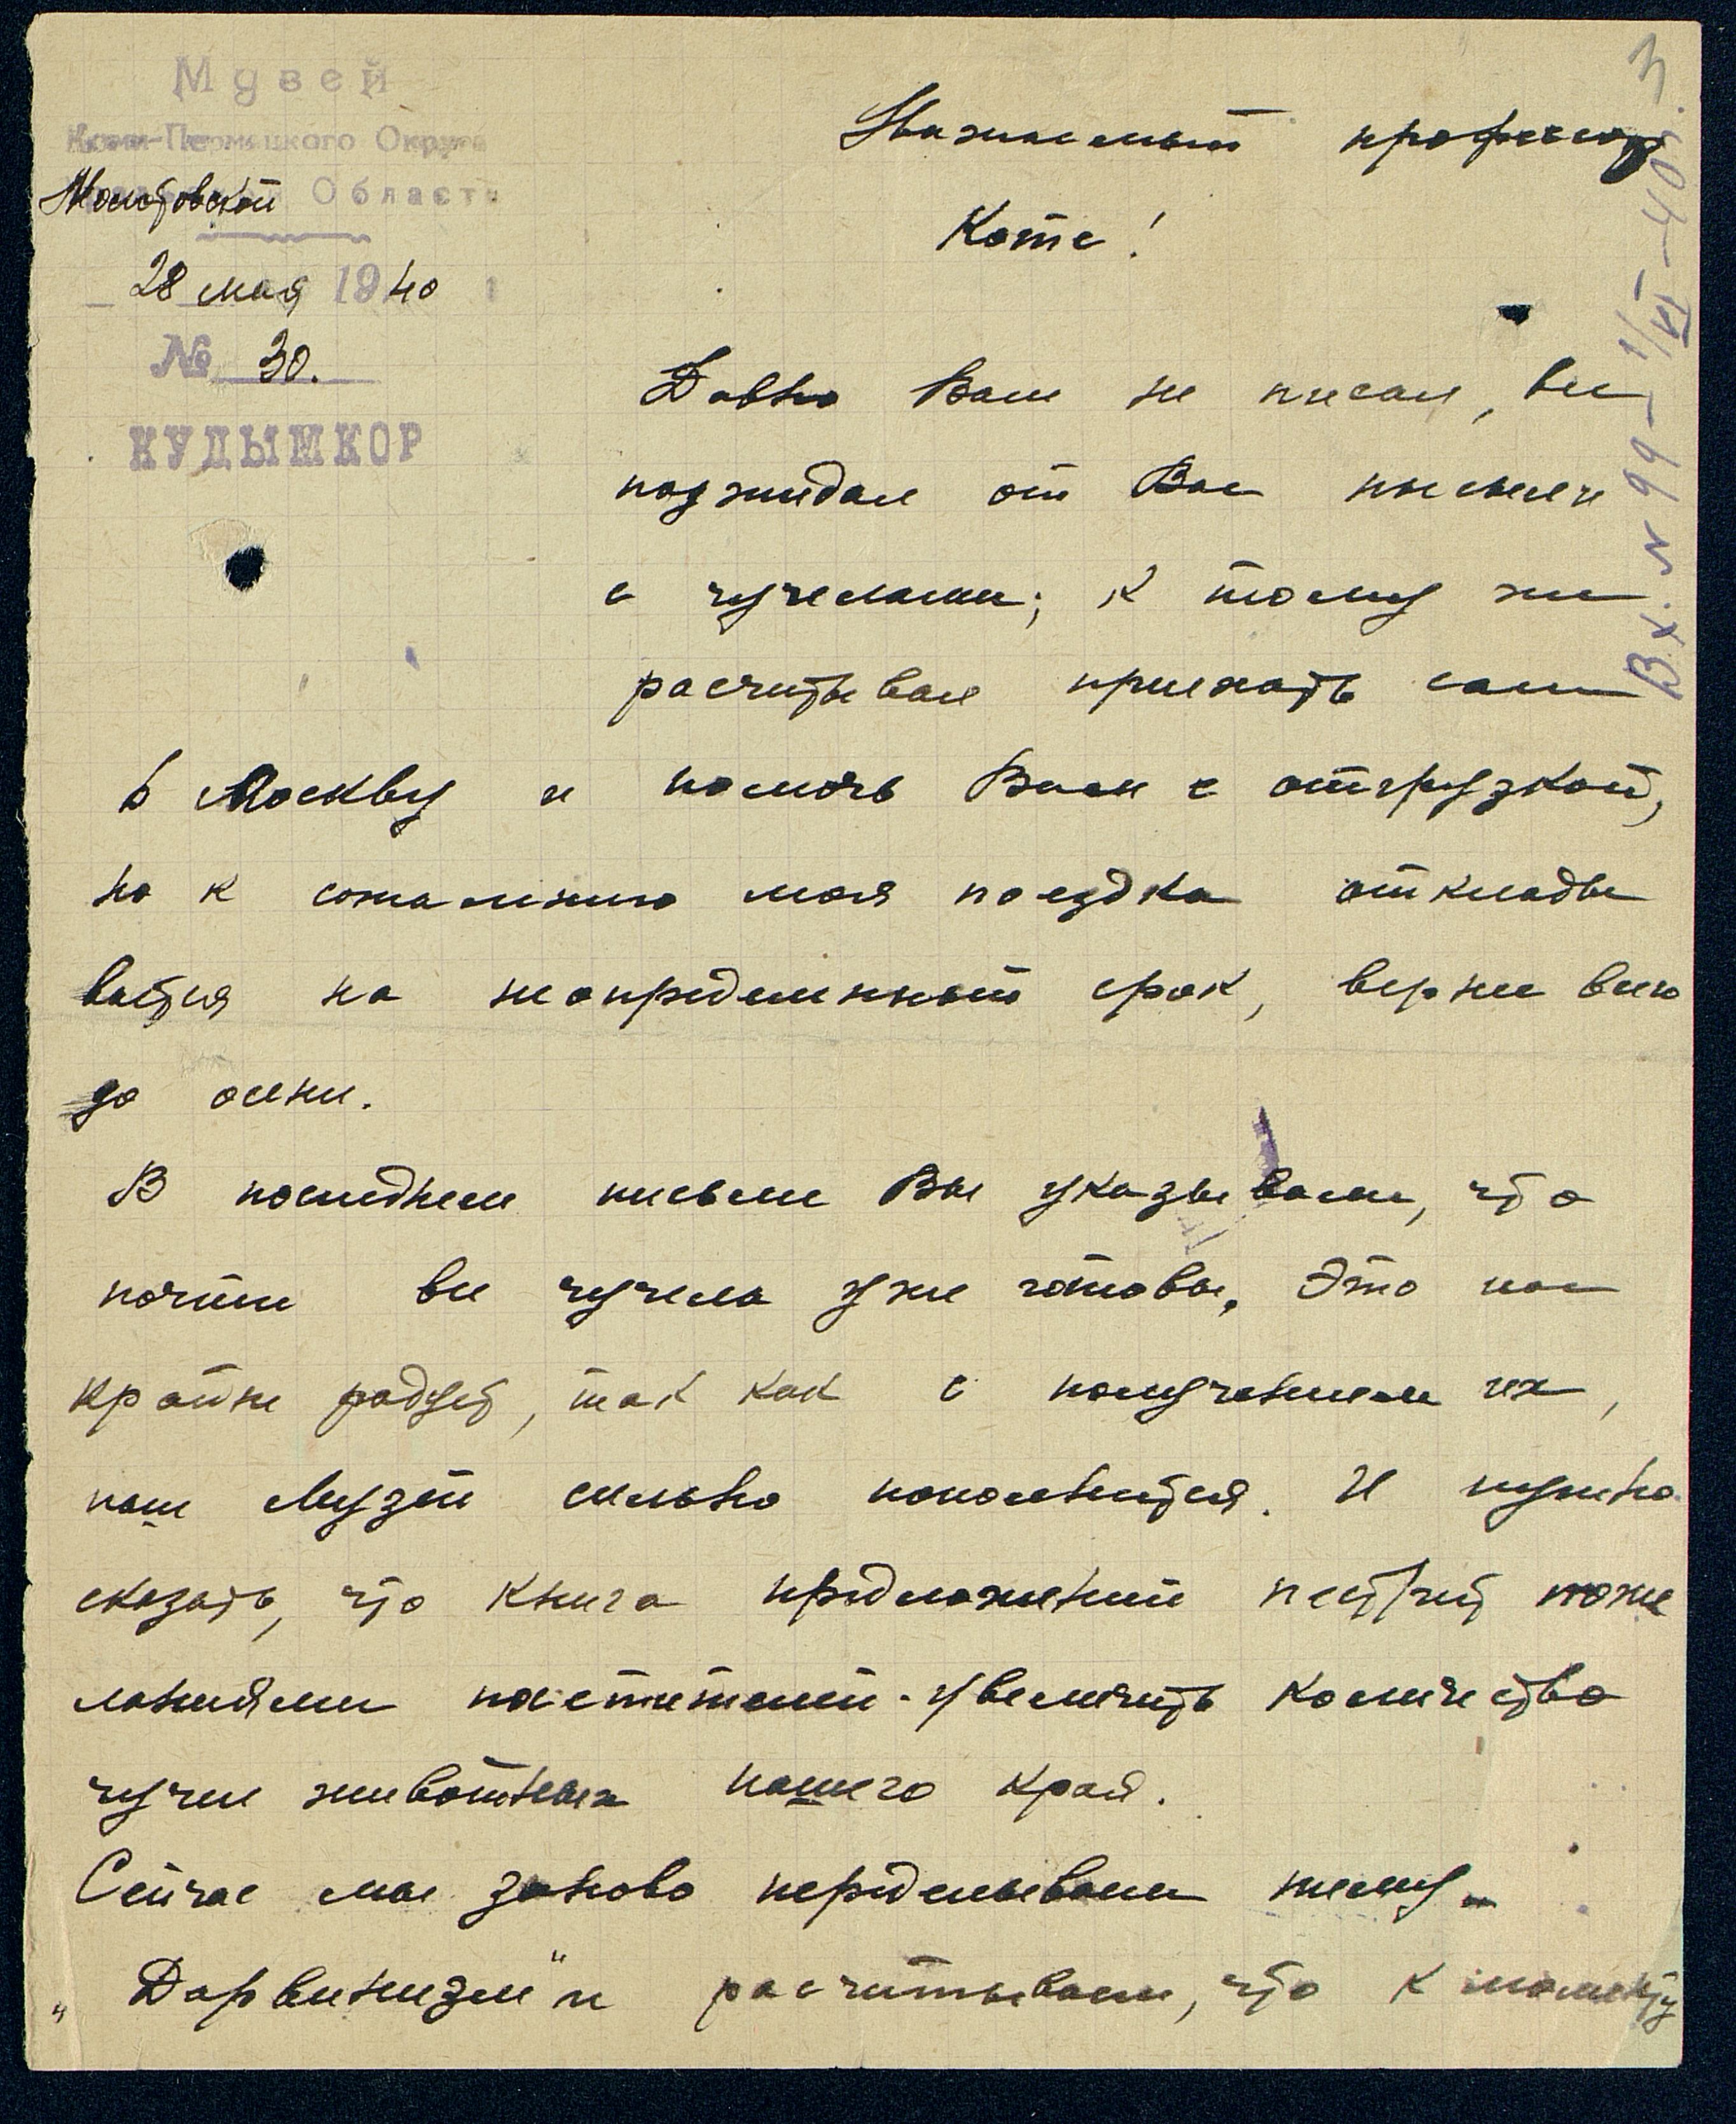 Музей
Коми-Пермяцкого Округа
Молотовской Области
28 мая 1940
№ 30.
КУДЫМКОР
3
Вх. N 99 - 1/VI - 40 г.
Уважаемый профессор
Котс!
Давно Вам не писал, все
поджидал от Вас письмеч
с чучелами; к тому же
расчитывал приехать сам
в Москву и помочь Вам с отгрузкой,
но к сожалению моя поездка откладые
вается на неопределенный срок, вернее всего
до осени.
В последнем письме Вы указывали, что
почти все чучела уже готовы. Это нас
крайне радует, так как с получением их,
наш Музей сильно пополнится. И нужно
сказать, что книга предложений пестрит поже
ланиями посетителей - увеличить количество
чучел животных нашего края.
Сейчас мы заново переделываем тему -
„Дарвинизм" и расчитываем, что к моменту